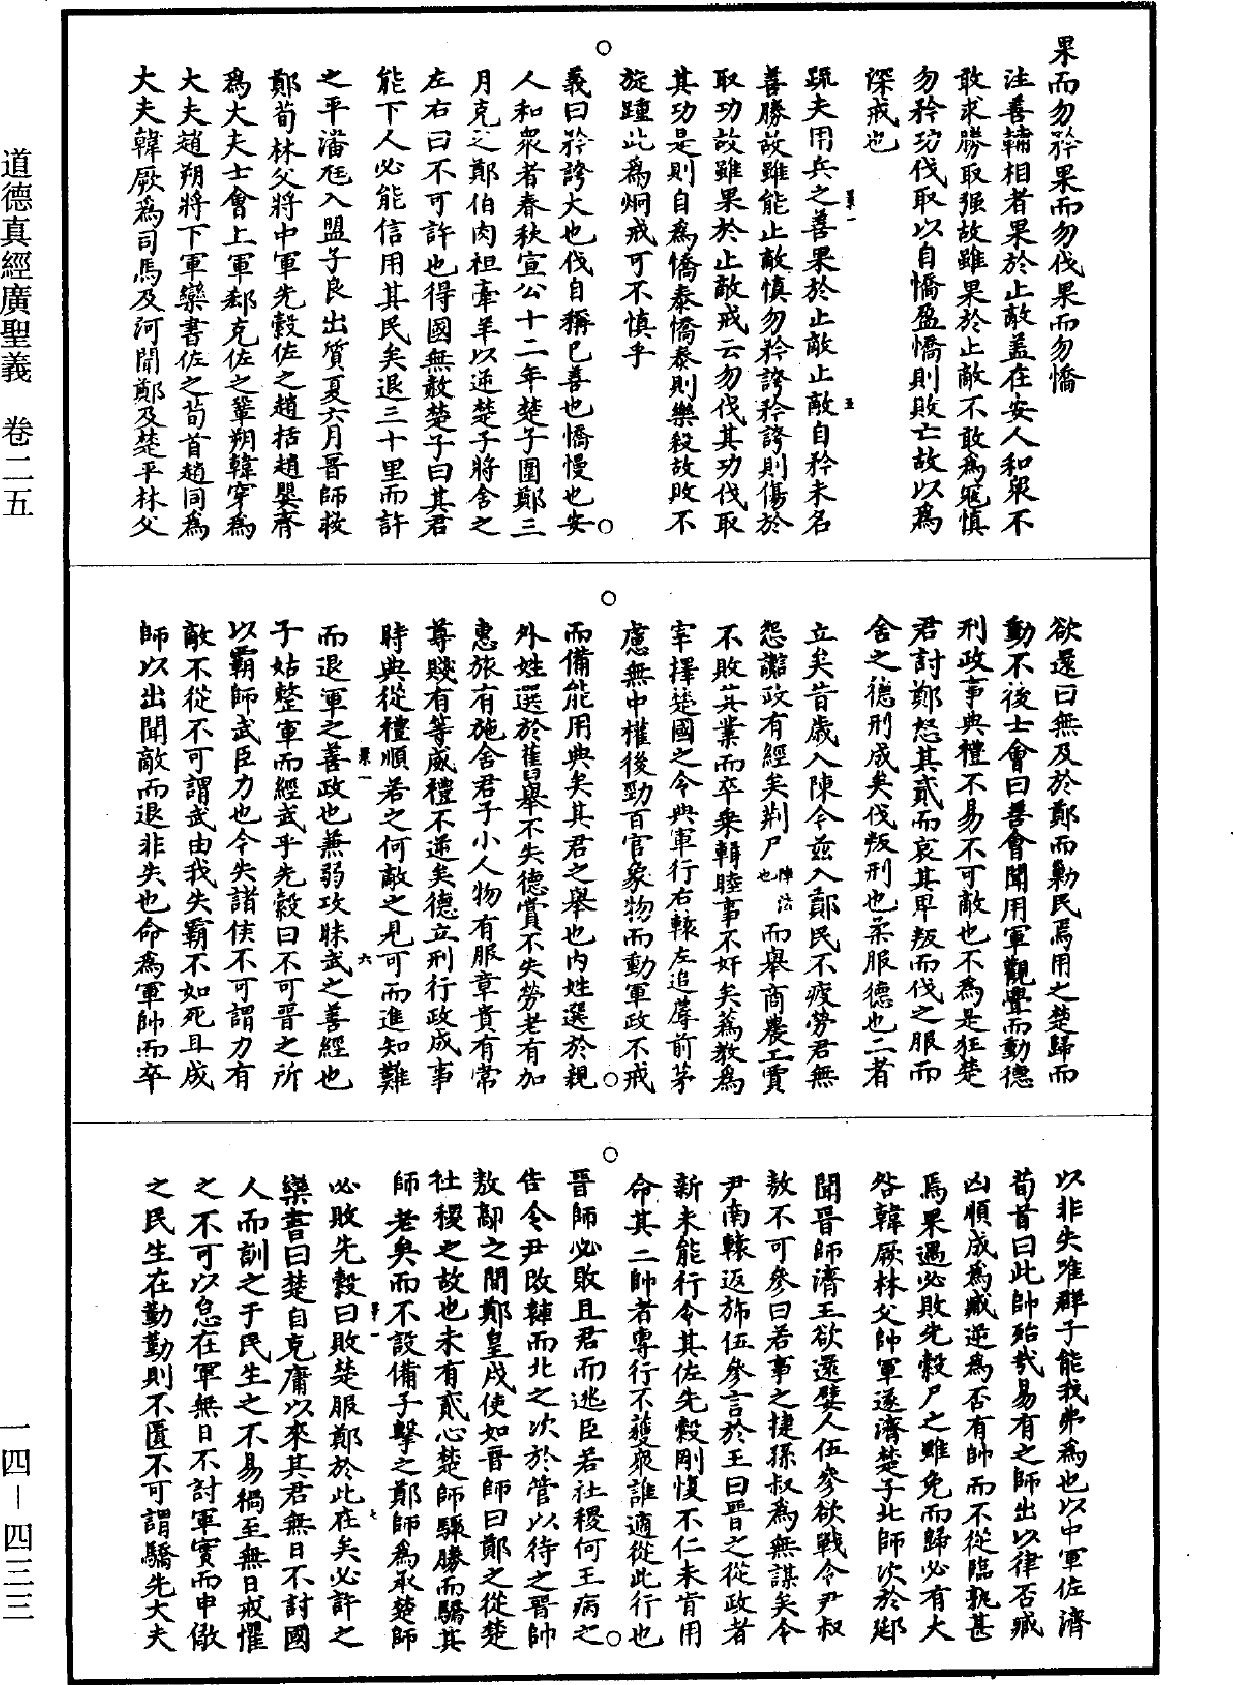 果而勿矜果而勿伐果而勿憍
注善輔相者果於止敵蓋在安人和衆不
敢求勝取强故雖果於止敵不敢為寇慎
勿矜功伐取以自憍盈憍則敗亡故以爲
深戒也
疏夫用兵之善果於止敵止敵自矜未名
善勝故雖能止敵慎勿矜誇矜誇則傷於
取功故雖果於止敵戒云勿伐其功伐取
其功是則自爲憍泰憍泰則樂殺故敗不
旋踵此爲炯戒可不慎乎
義曰矜誇大也伐自稱已善也憍慢也安
人和衆者春秋宣公十二年楚子圍鄭三
月克之鄭伯肉袒牽羊以逆楚子將舍之
左右曰不可許也得國無赦楚子曰其君
能下人必能信用其民矣退三十里而許
之平潘尫入盟子良出質夏六月晉師救
鄭荀林父將中軍先縠佐之趙括趙嬰齊
爲大夫士會上軍郄克佐之鞏朔韓穿爲
大夫趙朔將下軍欒書佐之荀首趙同爲
大夫韓厥爲司馬及河聞鄭及楚平林父
欲還曰無及於鄭而勦民焉用之楚歸而
動不後士會曰善會聞用軍觀舋而動德
刑政事典禮不易不可敵也不爲是征楚
君討鄭怒其貳而哀其卑叛而伐之服而
舍之德刑成矣伐叛刑也柔服德也二者
立矣昔歲入陳今茲入鄭民不疲勞君無
怨讟政有經矣荆尸陣法也而舉商農工賈
不敗其業而卒乗輯睦事不奸矣蔿敖為
宰擇楚國之令典軍行右轅左追蓐前茅
慮無中權後勁百官象物而動軍政不戒
而備能用典矣其君之舉也内姓選於親
外姓選於舊舉不失德賞不失勞老有加
惠旅有施舍君子小人物有服章貴有常
尊賤有等威禮不逆矣德立刑行政成事
時典從禮順若之何敵之見可而進知難
而退軍之善政也兼弱攻昧武之善經也
子姑整軍而經武乎先縠曰不可晉之所
以霸師武臣力也今失諸侯不可謂力有
敵不從不可謂武由我失霸不如死且成
師以出聞敵而退非失也命爲軍帥而卒
以非失唯群子能我弗爲也以中軍佐濟
荀首曰此師殆哉易有之師出以律否臧
凶順成爲臧逆為否有帥而不從臨孰甚
焉果遇必敗先縠尸之雖免而歸必有大
咎韓厥林父帥軍遂濟楚子北師次於郔
聞晉師濟王欲還嬖人伍參欲戰令尹叔
敖不可參曰若事之捷孫叔爲無謀矣令
尹南轅返斾伍參言於王曰晉之從政者
新未能行令其佐先縠剛愎不仁未肯用
命其二帥者專行不獲衆誰適從此行也
晉師必敗且君而逃臣若社稷何王病之
告令尹改轅而北之次於管以待之晉帥
敖鄗之間鄭皇戌使如晉師曰鄭之從楚
社稷之故也未有貳心楚師驟勝而驕其
師老矣而不設備子擊之鄭師爲承楚師
必敗先縠曰敗楚服鄭於此在矣必許之
欒書曰楚自克庸以來其君無日不討國
人而訓之于民生之不易禍至無日戒懼
之不可以怠在軍無日不討軍實而申儆
之民生在勤勤則不匱不可謂驕先大夫
道德真經廣聖義 卷二五
一四—四三三